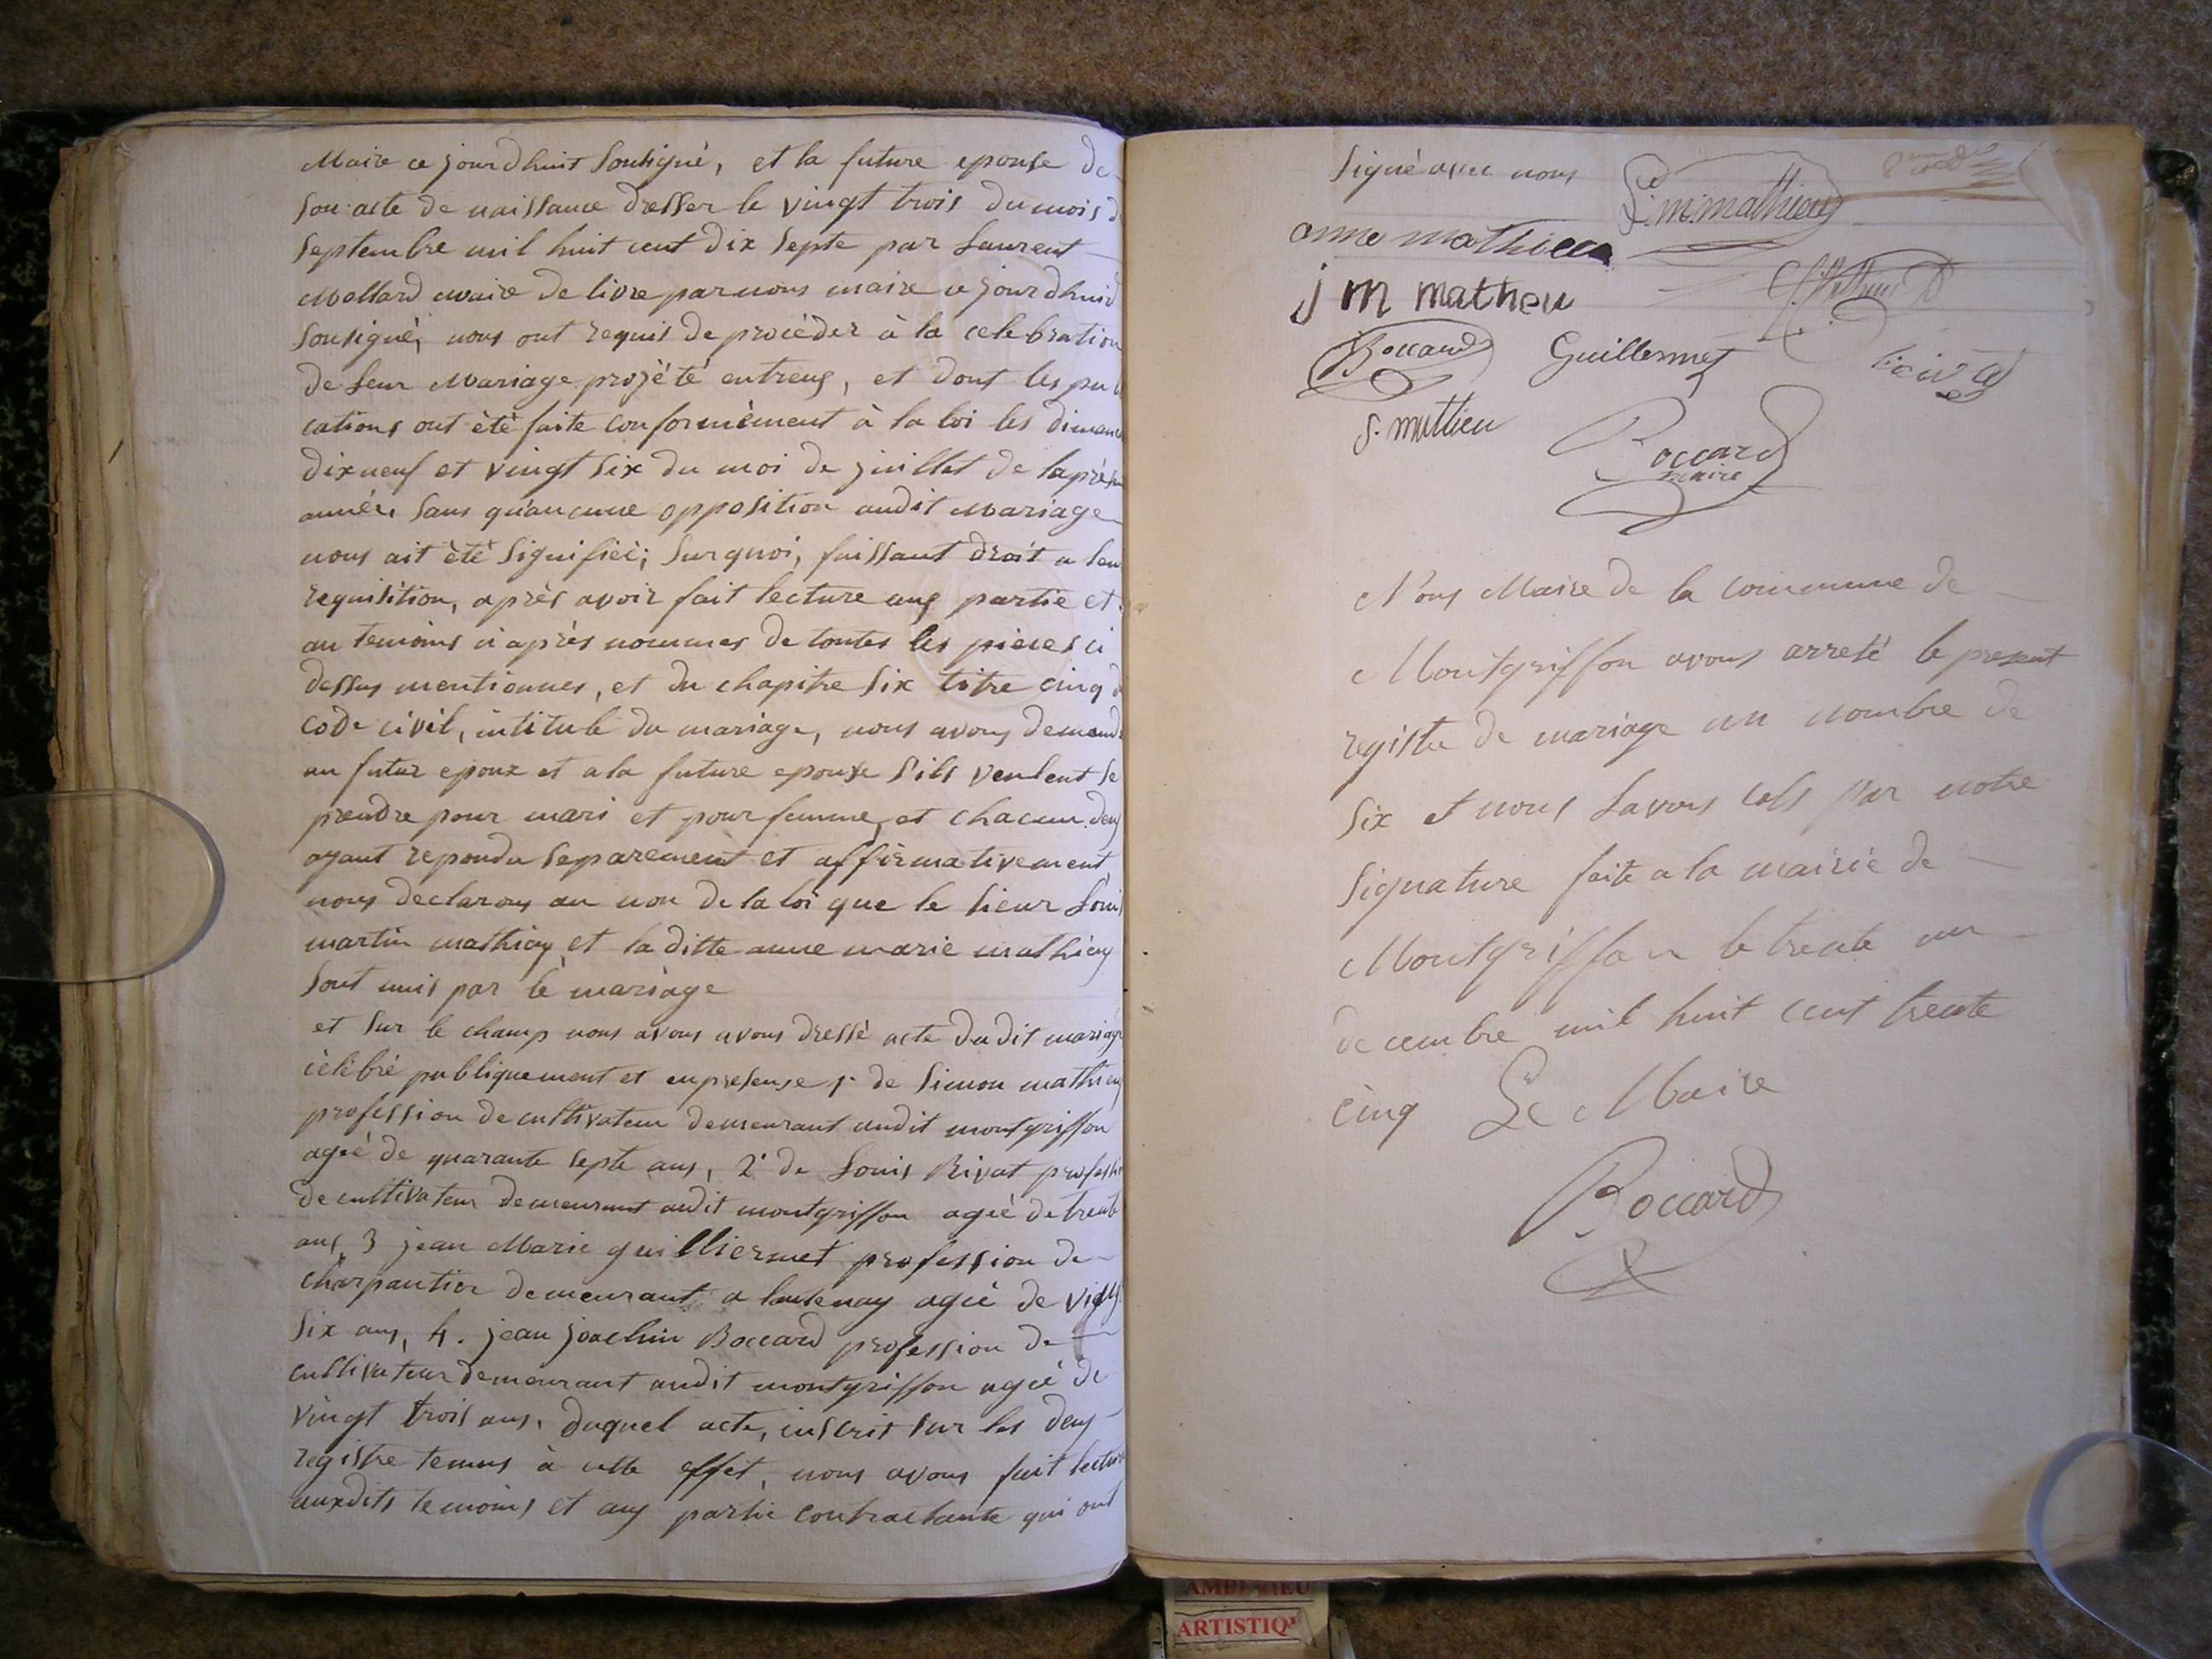 Maire ce jourdhuit Soussigné, et la future epouse de
Son acte de naissance dresser le vingt trois du mois d
Septembre mil huit cent dix Septe par Laurent
Mollard maire delivre par nous maire ce jourdhuid
Sousigné, nous ont requis de procéder à la celebration
de leur Mariage projèté entreux, et dont les pu
cations ont été faite conformément à la loi les diman
dixneuf et vingt Six du moi de juillet de la présen
année, Sans qu'aucune opposition audit Mariage
nous ait été Signifiée; Surquoi, faissant droit a leu
requisition, après avoir fait lecture aux partie et
au temoins ci après nommés de toutes les pièces ci
dessus mentionnes, et du chapitre Six titre cinq d
code civil, intitulé du mariage, nous avons demand
au futur epoux et a la future epouse S'ils veulent Se
prendre pour mari et pour femme, et chacun deux
ayant repondu Separement et affirmativement
nous declarons au non de la loi que le Sieur Loui
martin mathieu et la ditte anne marie mathieu
Sont unis par le mariage
et Sur le champ nous avons avons dressé acte du dit mariage
célébré publiquement et en presense 1. de Simon mathieu
profession de cultivateur demeurant audit montgriffon
agée de quarante Septe ans, 2. de Louis Rivat professi
de cultivateur demeurant audit montgriffon agée de trente
ans, 3 jean Marie guilliermet profession de
charpantier demeurant a lantenay agée de vigt
Six ans, 4. jean joachin Boccard profession de
cultivateur demeurant audit montgriffon agée de
vingt trois ans. duquel acte, inscrit Sur les deux
registre tenus à cette effet, nous avons fait lecture
auxdits temoins et aux partie contractante qui ont
Signé avec nous L. m. mathieu
anne mathieu
j m matheu
Boccard Guillermet
S. mathieu
Boccard
maire
Nous Maire de la commune de
Montgriffon avons arreté le present
registre de mariage au nombre de
Six et nous Lavons par notre
Signature faite a la mairie de
Montgriffon le trente un
decembre mil huit cent trente
cinq Le Maire
Boccard
ARTISTIQ